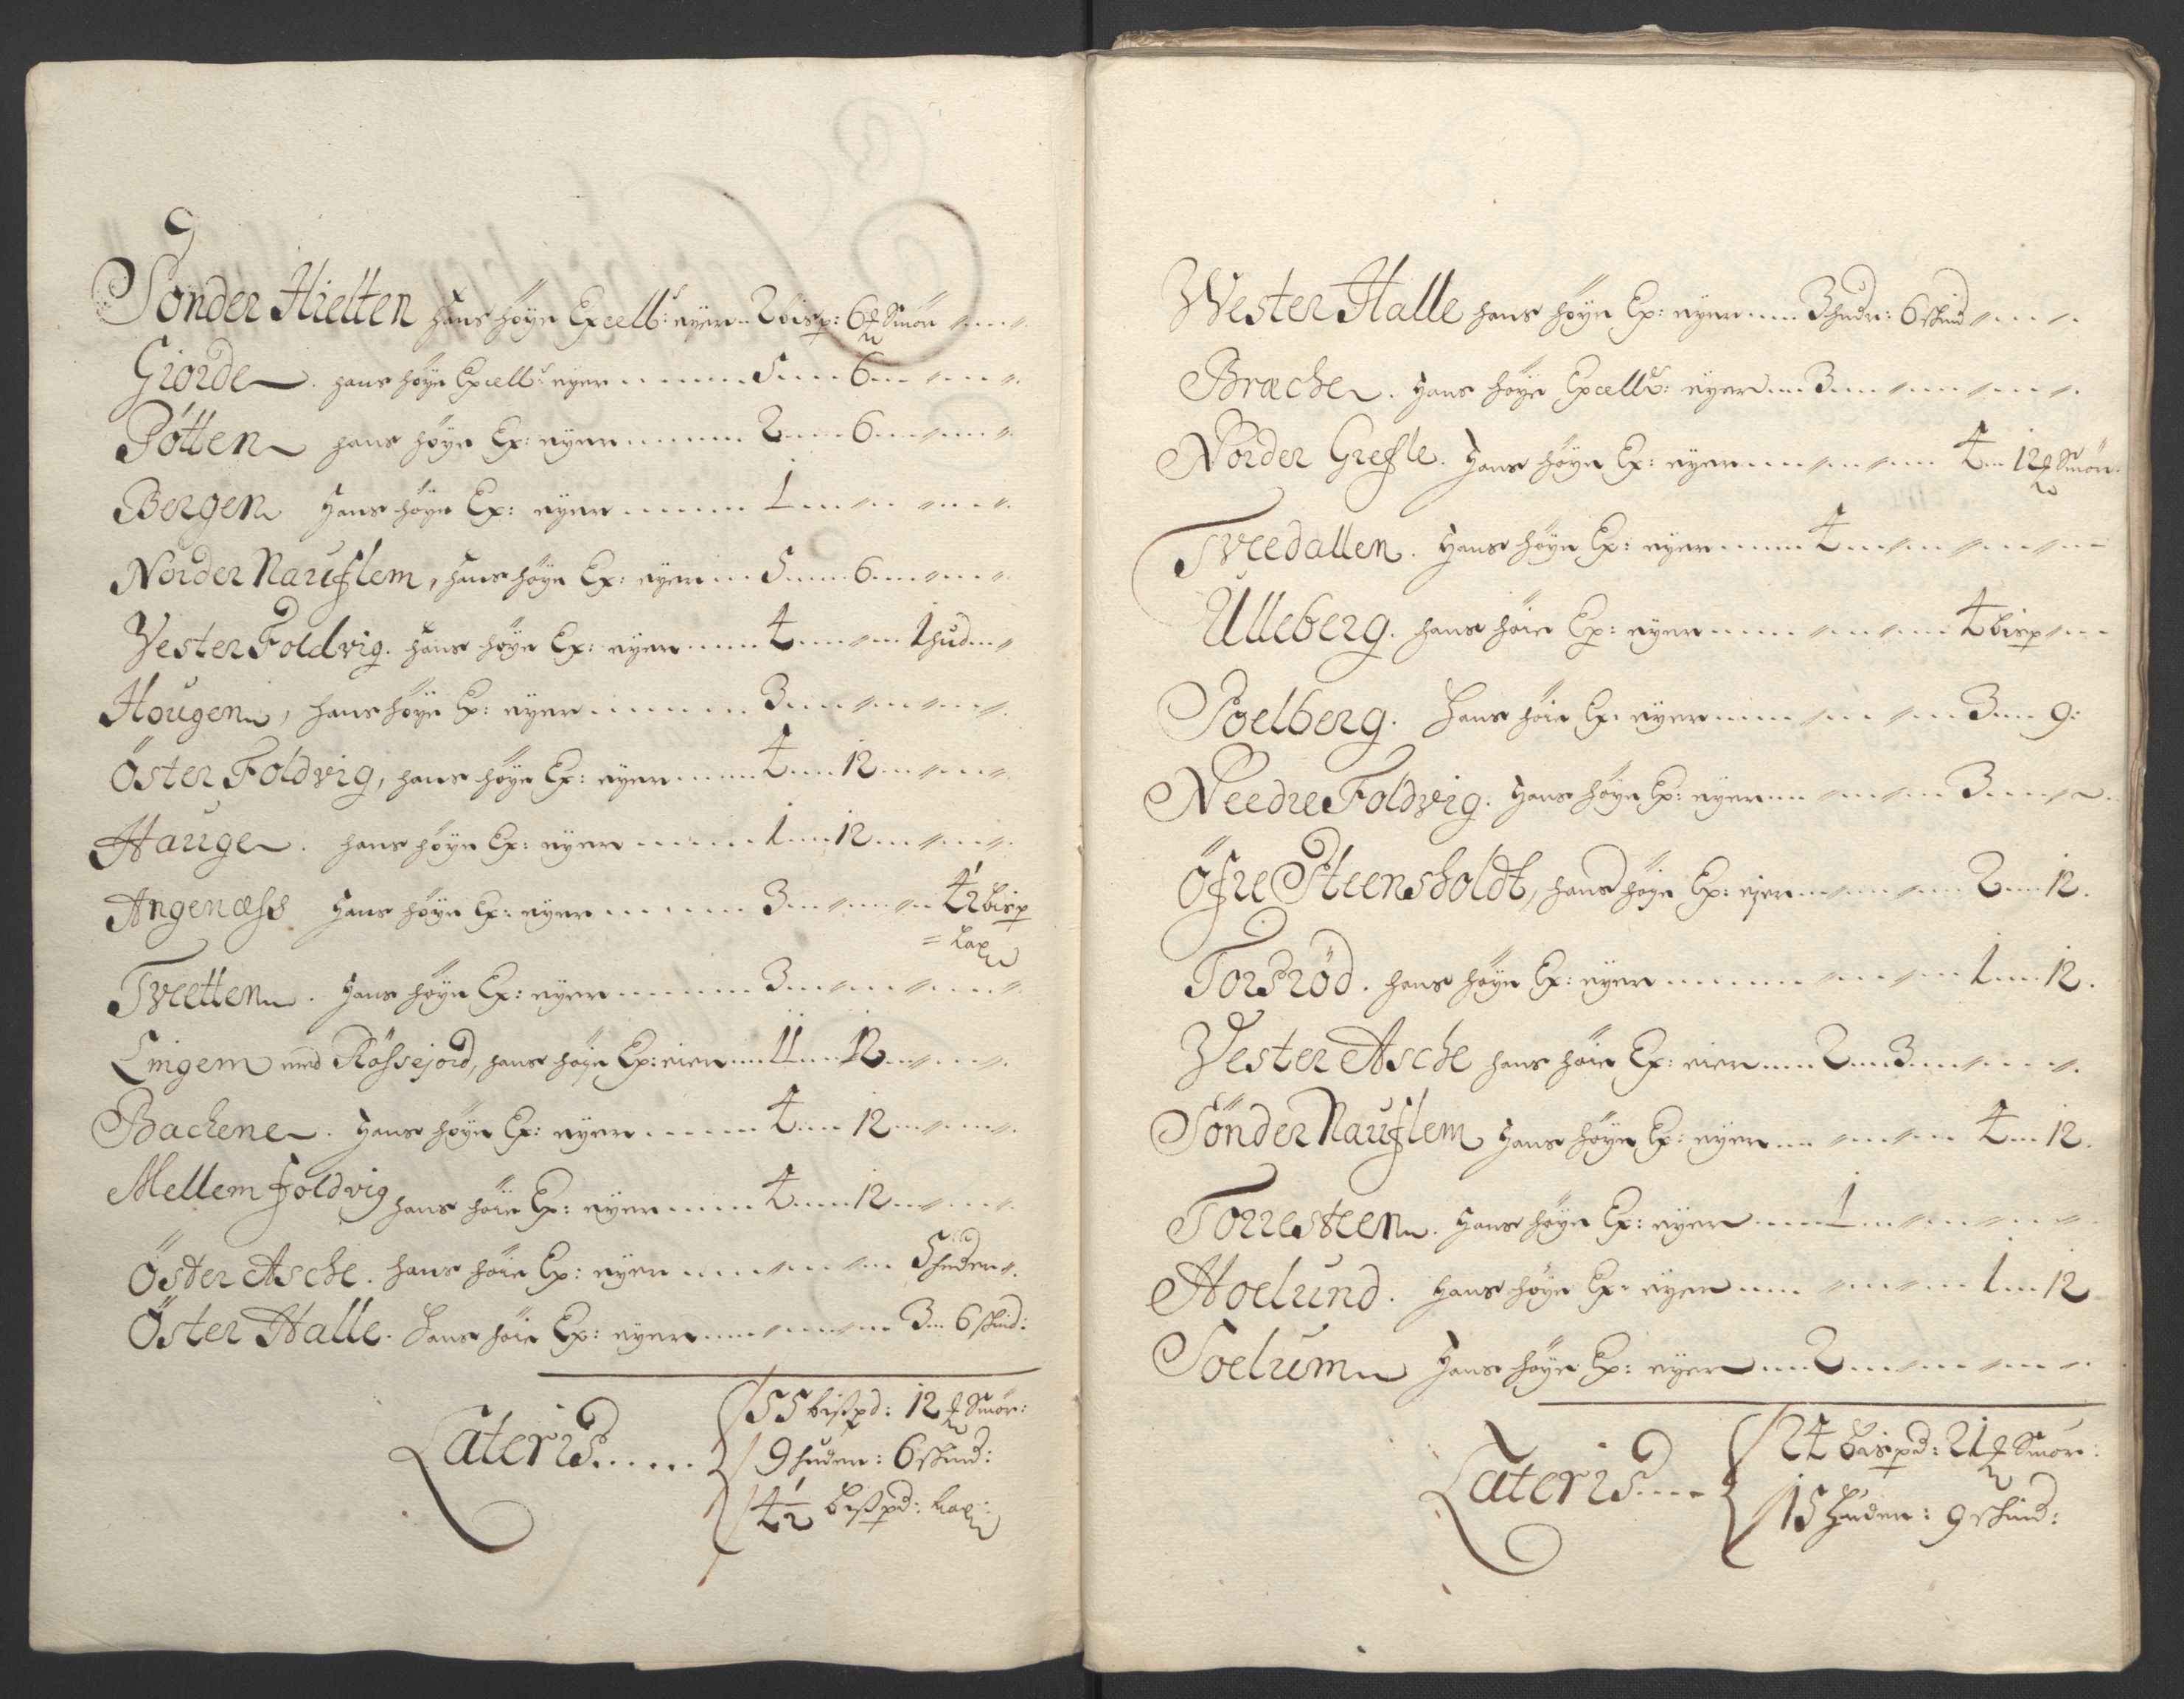 Sönder Hielten hans höye Excell:s eyer.. 2 bisp: 6 ℔ Smör „ „
Giorde. hans höye Excell:s eyer ...... 5 ... 6 ... „ ... „
Pötten hans höye Ex: eyer ...... 2 ... 6 ... „ ... „
Bergen Hans höye Ex: eyer ...... 1 ... „ ... „ ... „
Norder Nauflem, Hans höye Ex: eyer ... 5 ... 6 ... „ ... „
Vester Foldvig. Hans höye Ex: eyer ..... 4 ... „ ... 1 hud ... „
Hougen, hans höye Ex: eyer ....... 3 ... „ ... „ ... „
Öster Foldvig, hans höye Ex: eyer ..... 4 ... 12 ... „ ... „
Hauge. hans höye Ex: eyer ...... 1 ... 12 ... „ ... „
Angenæss Hans höye Ex: eyer ...... 3 ... „ ... „ ... 4½ bisp
= Lax
Tvetten. Hans höye Ex: eyer ...... 3 ... „ ... „ ... „
Lingem med Rössejord, hans höje Ex: eier ... 11 ... 12 ... „ ... „
Bachene. Hans höye Ex: eyer ...... 4 ... 12 ... „ ... „
Mellem foldvig hans höie Ex: eyer ..... 4 ... 12 ... „ ... „
Öster Asche. hans höie Ex: eyer ..... „ ... „ ... 5 huder „.
Öster Halle. Hans höie Ex: eyer ..... „ ... „ ... 3 ... 6 skind:
Lateris ..... 55 bißpd: 12 ℔ Smör:
9 huder: 6 skind:
4½ bißpd: Lax:
Wester Halle hans höye Ex: eyer .... 3 hudr: 6 skind „ ... „
Brache. Hans höye Excell:s eyer ... 3 ... „ ... „ ... „
Norder Grefle. Hans höye Ex: eyer ..... „ ... „ ... 4 ... 12 ℔ Smör.
Tveedallen. Hans höye Ex: eyer ..... 4 ... „ ... „ ... „
Ulleberg. hans höie Ex: eyer ..... „ ... „ ... 4 bisp „
Poelberg. Hans höie Ex: eyer ..... „ ... „ ... 3 ... 9:
Needre Foldvig. Hans höye Ex: eyer ... „ ... „ ... 3 ... „
Öfre Steensholdt, hans höje Ex: ejer ... „ ... „ ... 2 ... 12.
Torsrød. hans höye Ex: eyer ....... „ ... „ ... 1 ... 12.
Vester Asche hans höie Ex: eier .... 2 ... 3 ... „ ... „
Sönder Nauflem Hans höye Ex: eyer ... „ ... „ ... 4 ... 12.
Torresteen. Hans höye Ex: eyer .... 1 ... „ ... „ ... „
Hoelund. Hans höye Ex: eyer .... „ ... „ ... 1 ... 12
Soelum Hans höye Ex: eyer ... 2 ... „ ... „ ... „
Lateris .... 24 bispd: 21 ℔ Smör:
15 Huder: 9 skind: